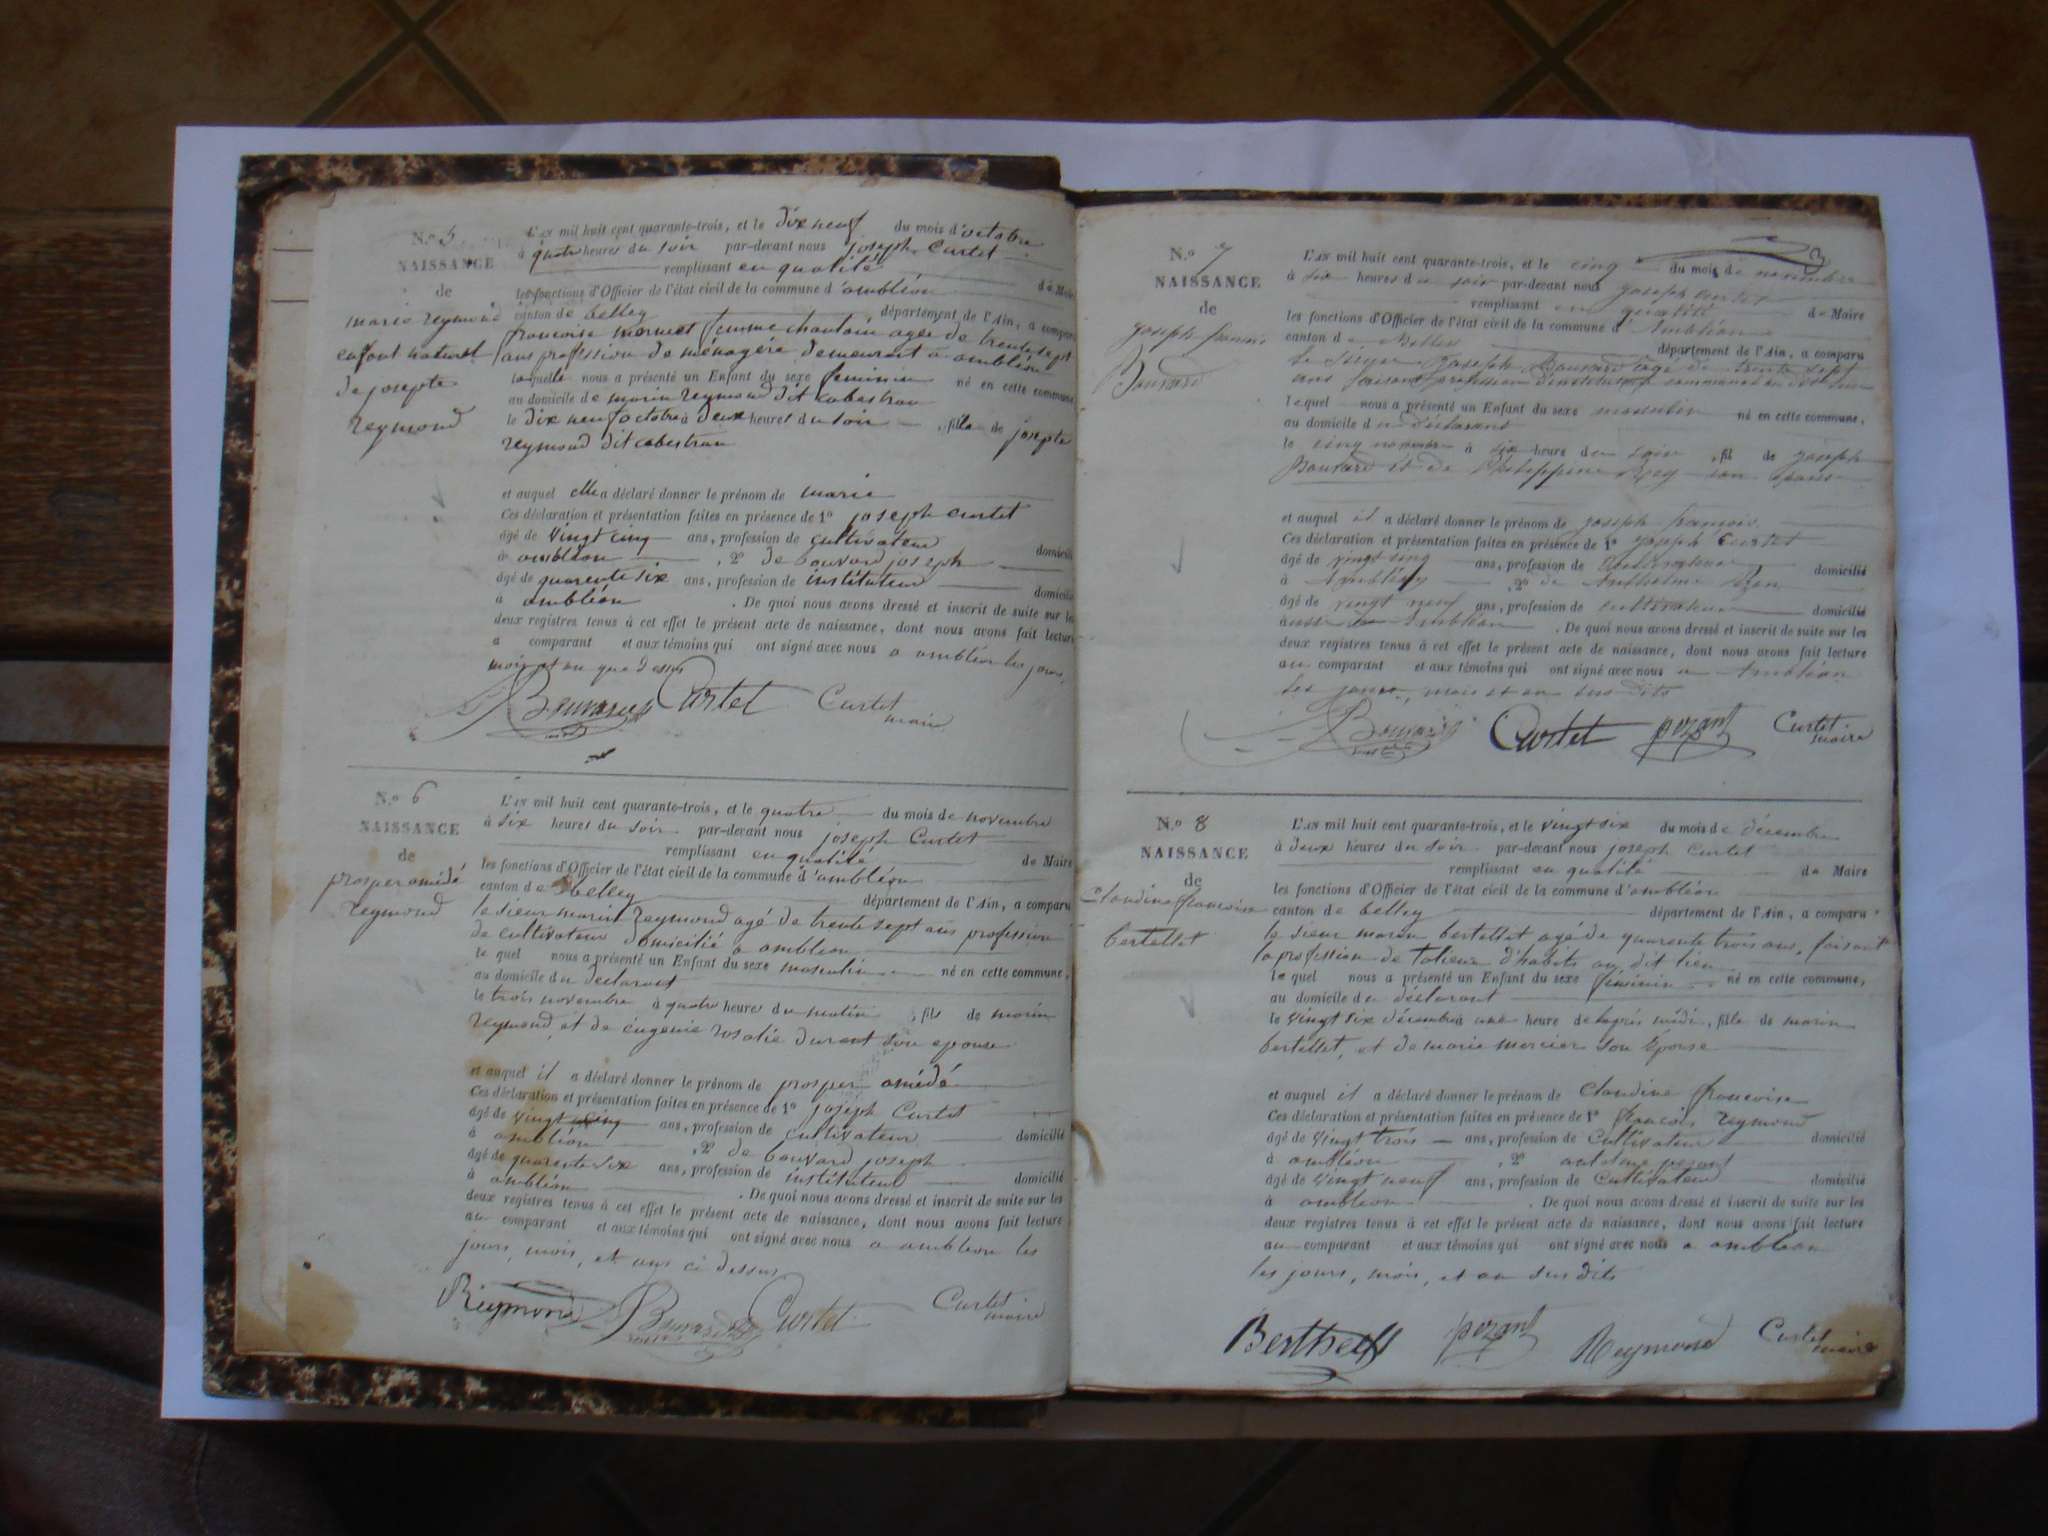 N.o 5
NAISSANCE
de
marie reymond
enfant naturel
de josepte
reymond
L'AN mil huit cent quarante-trois, et le dix neuf du mois d'octobre
à quatre heures du soir par-devant nous joseph Curtet
remplissant en qualité
les fonctions d'Officier de l'état civil de la commune d'ambléon de Maire
canton de belley département de l'Ain, a comparu
francoise femme chantain agée de trente sept
ans profession de ménagére demeurant a ambléon
laquelle nous a présenté un Enfant du sexe feminin né en cette commune
au domicile de marin reymond dit cabestran
le dix neuf octobre à deux heures du soir , fille de josepte
reymond dit cabestran
et auquel elle a déclaré donner le prénom de marie
Ces déclaration et présentation faites en présence de 1o joseph curtet
âgé de vingt cinq ans, profession de cultivateur domicilié
à ambléon , 2o de bouvard joseph
âgé de quarente six ans, profession de instituteur domicilié
à ambléon . De quoi nous avons dressé et inscrit de suite sur les
deux registres tenus à cet effet le présent acte de naissance, dont nous avons fait lecture
a comparant et aux témoins qui ont signé avec nous a ambléon les jours,
mois et an que dessus
Bouvard Curtet Curtet
maire
N.o 6
NAISSANCE
de
prosper amédé
reymond
L'AN mil huit cent quarante-trois, et le quatre du mois de novembre
à six heures du soir par-devant nous joseph Curtet
remplissant en qualité de Maire
les fonctions d'Officier de l'état civil de la commune d'ambléon
canton de belley département de l'Ain, a comparu
le sieur marin reymond agé de trente sept ans profession
de cultivateur domicilié a ambléon
le quel nous a présenté un Enfant du sexe masculin né en cette commune,
au domicile du déclarant
le trois novembre à quatre heures du matin , fils de marin
reymond, et de eugenie rosalie durent son epouse
et auquel il a déclaré donner le prénom de prosper amédé
Ces déclaration et présentation faites en présence de 1o joseph Curtet
âgé de vingt cinq ans, profession de cultivateur domicilié
à ambléon , 2o de bouvard joseph
âgé de quarente six ans, profession de instituteur domicilié
à ambléon . De quoi nous avons dressé et inscrit de suite sur les
deux registres tenus à cet effet le présent acte de naissance, dont nous avons fait lecture
au comparant et aux témoins qui ont signé avec nous a ambléon les
jours, mois, et ans ci dessus
Reymond Bouvard Curtet Curtet
maire
N.o 7
NAISSANCE
de
joseph francois
Bouvard
3
L'AN mil huit cent quarante-trois, et le cinq du mois de novembre
à six heures du soir par-devant nous joseph curtet
remplissant en qualité de Maire
les fonctions d'Officier de l'état civil de la commune d'Ambléon
canton de Belley département de l'Ain, a comparu
le sieur Joseph Bouvard agé de trente sept
ans faisant profession d'instituteur
lequel nous a présenté un Enfant du sexe masculin né en cette commune,
au domicile du déclarant
le cinq novembre à six heure du soir , fil de joseph
Bouvard et de Philippine son épouse
et auquel il a déclaré donner le prénom de joseph francois
Ces déclaration et présentation faites en présence de 1o joseph Curtet
âgé de vingt cinq ans, profession de cultivateur domicilié
à Ambléon , 2o de Anthelme
âgé de vingt neuf ans, profession de cultivateur domicilié
aussi Ambléon . De quoi nous avons dressé et inscrit de suite sur les
deux registres tenus à cet effet le présent acte de naissance, dont nous avons fait lecture
au comparant et aux témoins qui ont signé avec nous a Ambléon
les jours, mois et an sus dits
Bouvard Curtet pezant Curtet
maire
N.o 8
NAISSANCE
de
claudine francoise
bertellet
L'AN mil huit cent quarante-trois, et le vingt six du mois de décembre
à deux heures du soir par-devant nous joseph curtet
remplissant en qualité de Maire
les fonctions d'Officier de l'état civil de la commune d'ambléon
canton de belley département de l'Ain, a comparu
le sieur marin bertellet agé de quarente trois ans, faisant
la profession de talieur d'habits au dit lieu
le quel nous a présenté un Enfant du sexe feminin né en cette commune,
au domicile du déclarant
le vingt six décembre à une heure de laprés midi, fille de marin
bertellet, et de marie mercier son épouse
et auquel il a déclaré donner le prénom de claudine francoise
Ces déclaration et présentation faites en présence de 1o francois reymond
âgé de vingt trois ans, profession de cultivateur domicilié
à ambléon , 2o pezant
âgé de vingt neuf ans, profession de cultivateur domicilié
à ambléon . De quoi nous avons dressé et inscrit de suite sur les
deux registres tenus à cet effet le présent acte de naissance, dont nous avons fait lecture
au comparant et aux témoins qui ont signé avec nous a ambléon
les jours, mois, et an sus dits
Berthelet pezant Reymond Curtet
maire